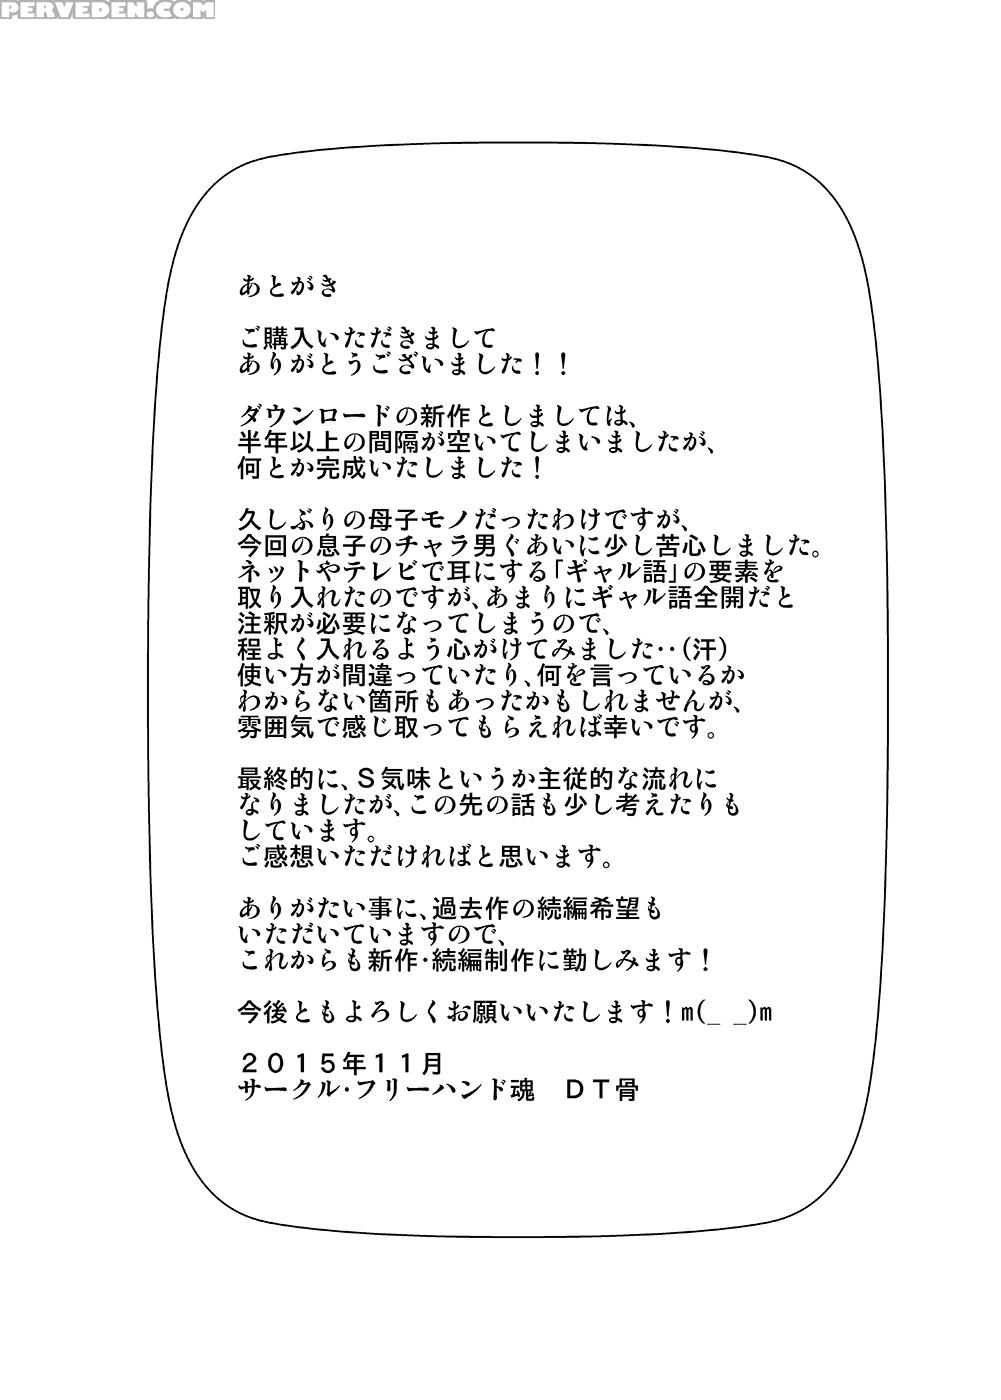 PERVEDEN.COM
あとがき
ご購入いただきまして
ありがとうございました！！
ダウンロードの新作としましては、
半年以上の間隔が空いてしまいましたが、
何とか完成いたしました！
久しぶりの母子モノだったわけですが、
今回の息子のチャラ男ぐあいに少し苦心しました。
ネットやテレビで耳にする「ギャル語」の要素を
取り入れたのですが、あまりにギャル語全開だと
注釈が必要になってしまうので、
程よく入れるよう心がけてみました‥（汗）
使い方が間違っていたり、何を言っているか
わからない箇所もあったかもしれませんが、
雰囲気で感じ取ってもらえれば幸いです。
最終的に、Ｓ気味というか主従的な流れに
なりましたが、この先の話も少し考えたりも
しています。
ご感想いただければと思います。
ありがたい事に、過去作の続編希望も
いただいていますので、
これからも新作・続編制作に勤しみます！
今後ともよろしくお願いいたします！m(_ _)m
２０１５年１１月
サークル・フリーハンド魂　ＤＴ骨